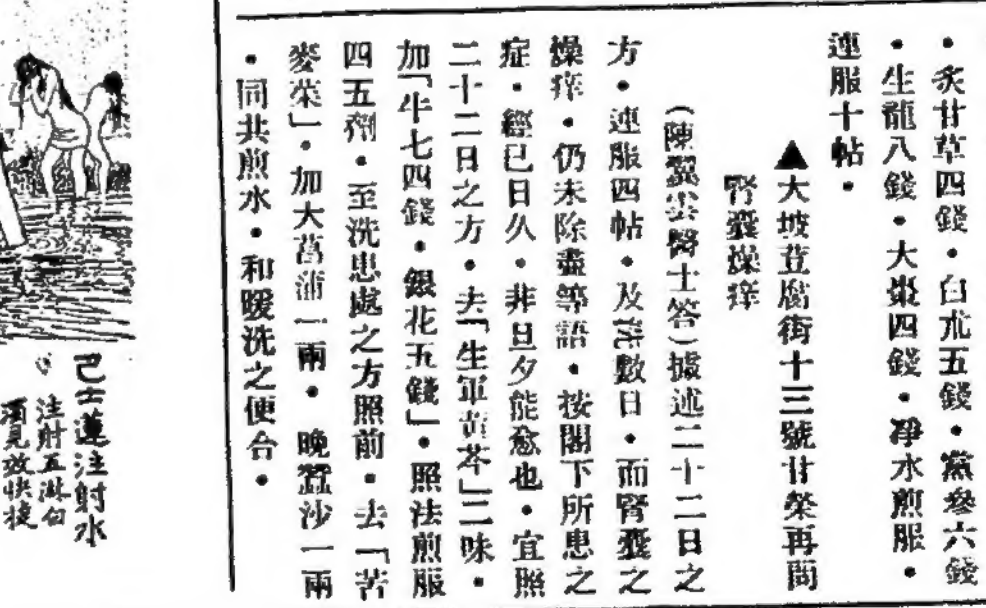 ・炙甘草四錢・白朮五錢・黨參六錢
・生龍八錢・大棗四錢・淨水煎服・
連服十帖・
▲大坡荳腐街十三號甘榮再問
腎囊燥痒
(陳翼雲醫士答)據述二十二日之
方・連服四帖・及洗數日・而腎囊之
燥痒・仍未除盡等語・按閣下所患之
症・經已日久・非旦夕能愈也・宜照
二十二日之方・去「生軍黃芩」二味・
加「牛七四錢・銀花五錢」・照法煎服
四五劑・至洗患處之方照前・去「苦
麥菜」・加大菖蒲一兩・晚蠶沙一兩
・同共煎水・和暖洗之便合・
己士蓮注射水
注射五淋白
濁見效快捷